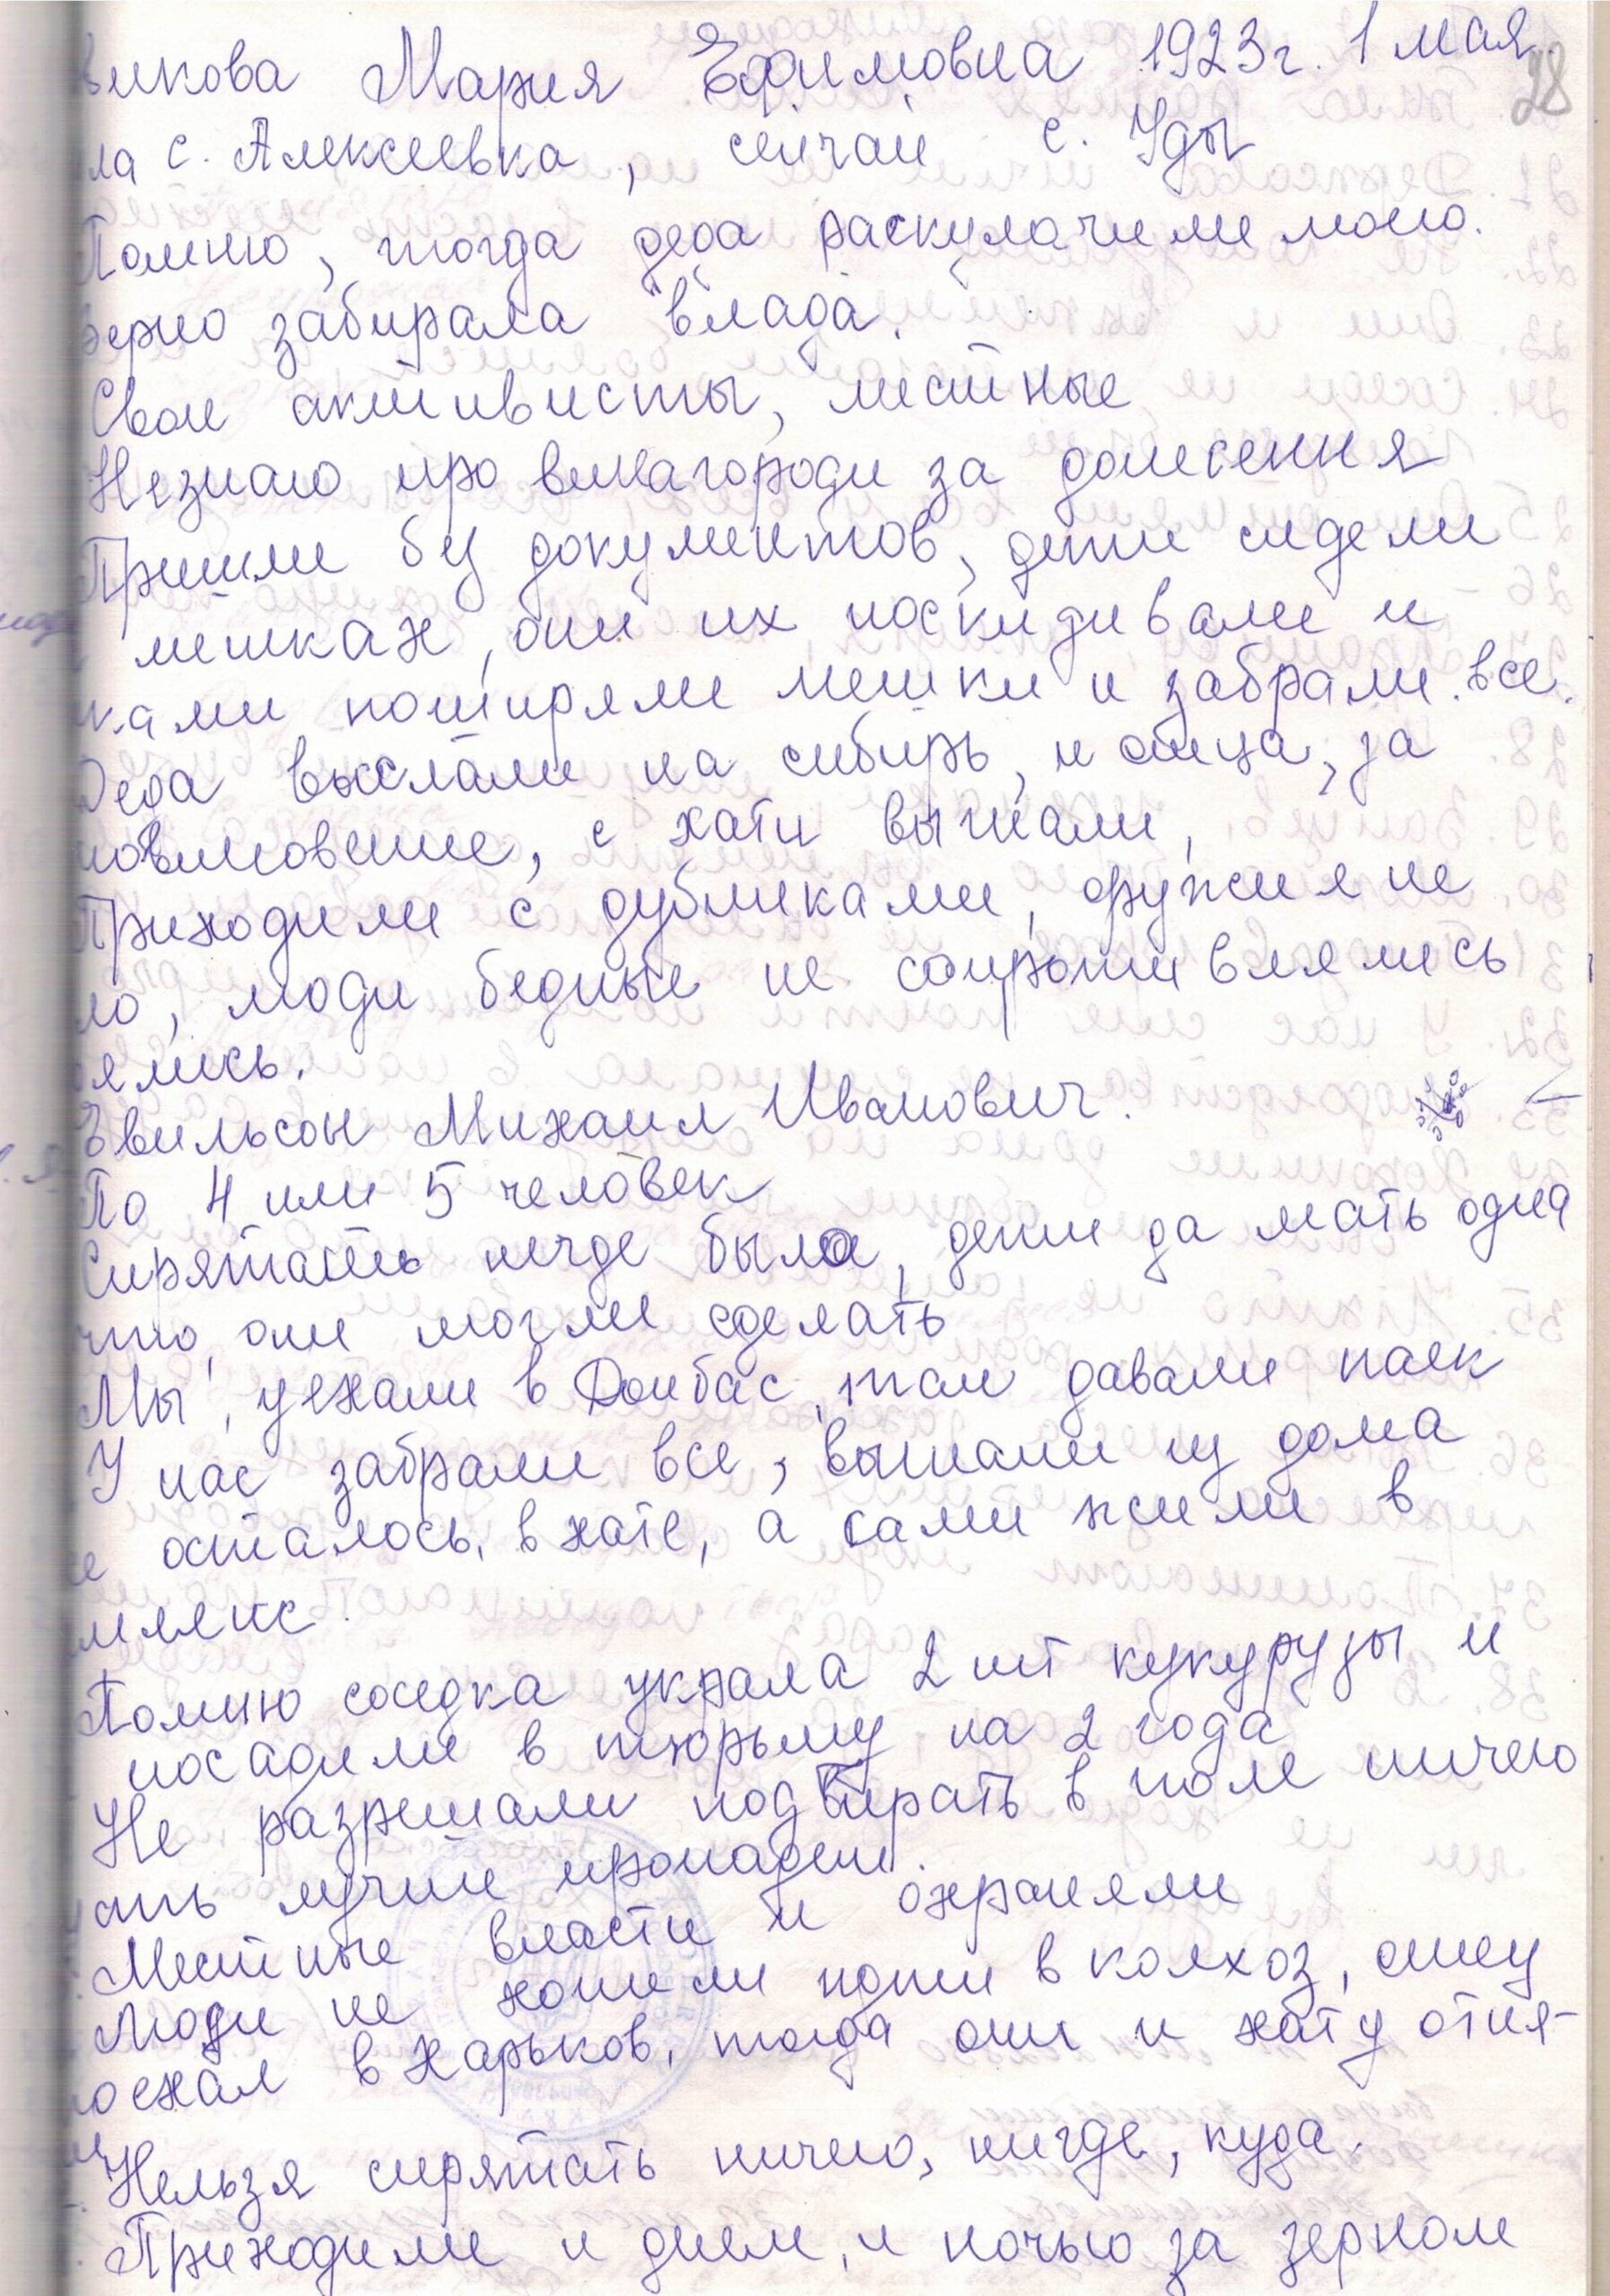 викова Мария Ефимовна 1923г. 1 мая
28
ла с. Алексеевка, сейчас с. Уды
Помню, тогда деда раскулачили моего.
ерно забирала "влада".
Свои активисты, местные
Незнаю про винагороди за донесення
Пришли без документов, дети сидели
мешках, они их поскидивали и
ками поширяли мешки и забрали все.
Деда выслали на сибирь, и отца, за
новиновение, с хати выгнали,
Приходили с дубинками, оружия не
ло, люди бедные не сопротивлялись
ялись.
Эвильсон Михаил Иванович.
По 4 или 5 человек
Спрятать негде было, дети да мать одна
что они могли сделать
Мы уехали в Донбас, там давали паек
У нас забрали все, выгнали из дома
е осталось в хате, а сами жили в
млянке.
Помню соседка украла 2 шт кукурузы и
посадили в тюрьму на 2 года
Не разрешали подбирать в поле ничего
ать лучше пропадет.
Местные власти и охраняли
Люди не хотели пойти в колхоз, отец
оехал в харьков, тогда они и хату отня-
ли
Нельзя спрятать ничего, нигде, куда.
Приходили и днем, и ночью за зерном